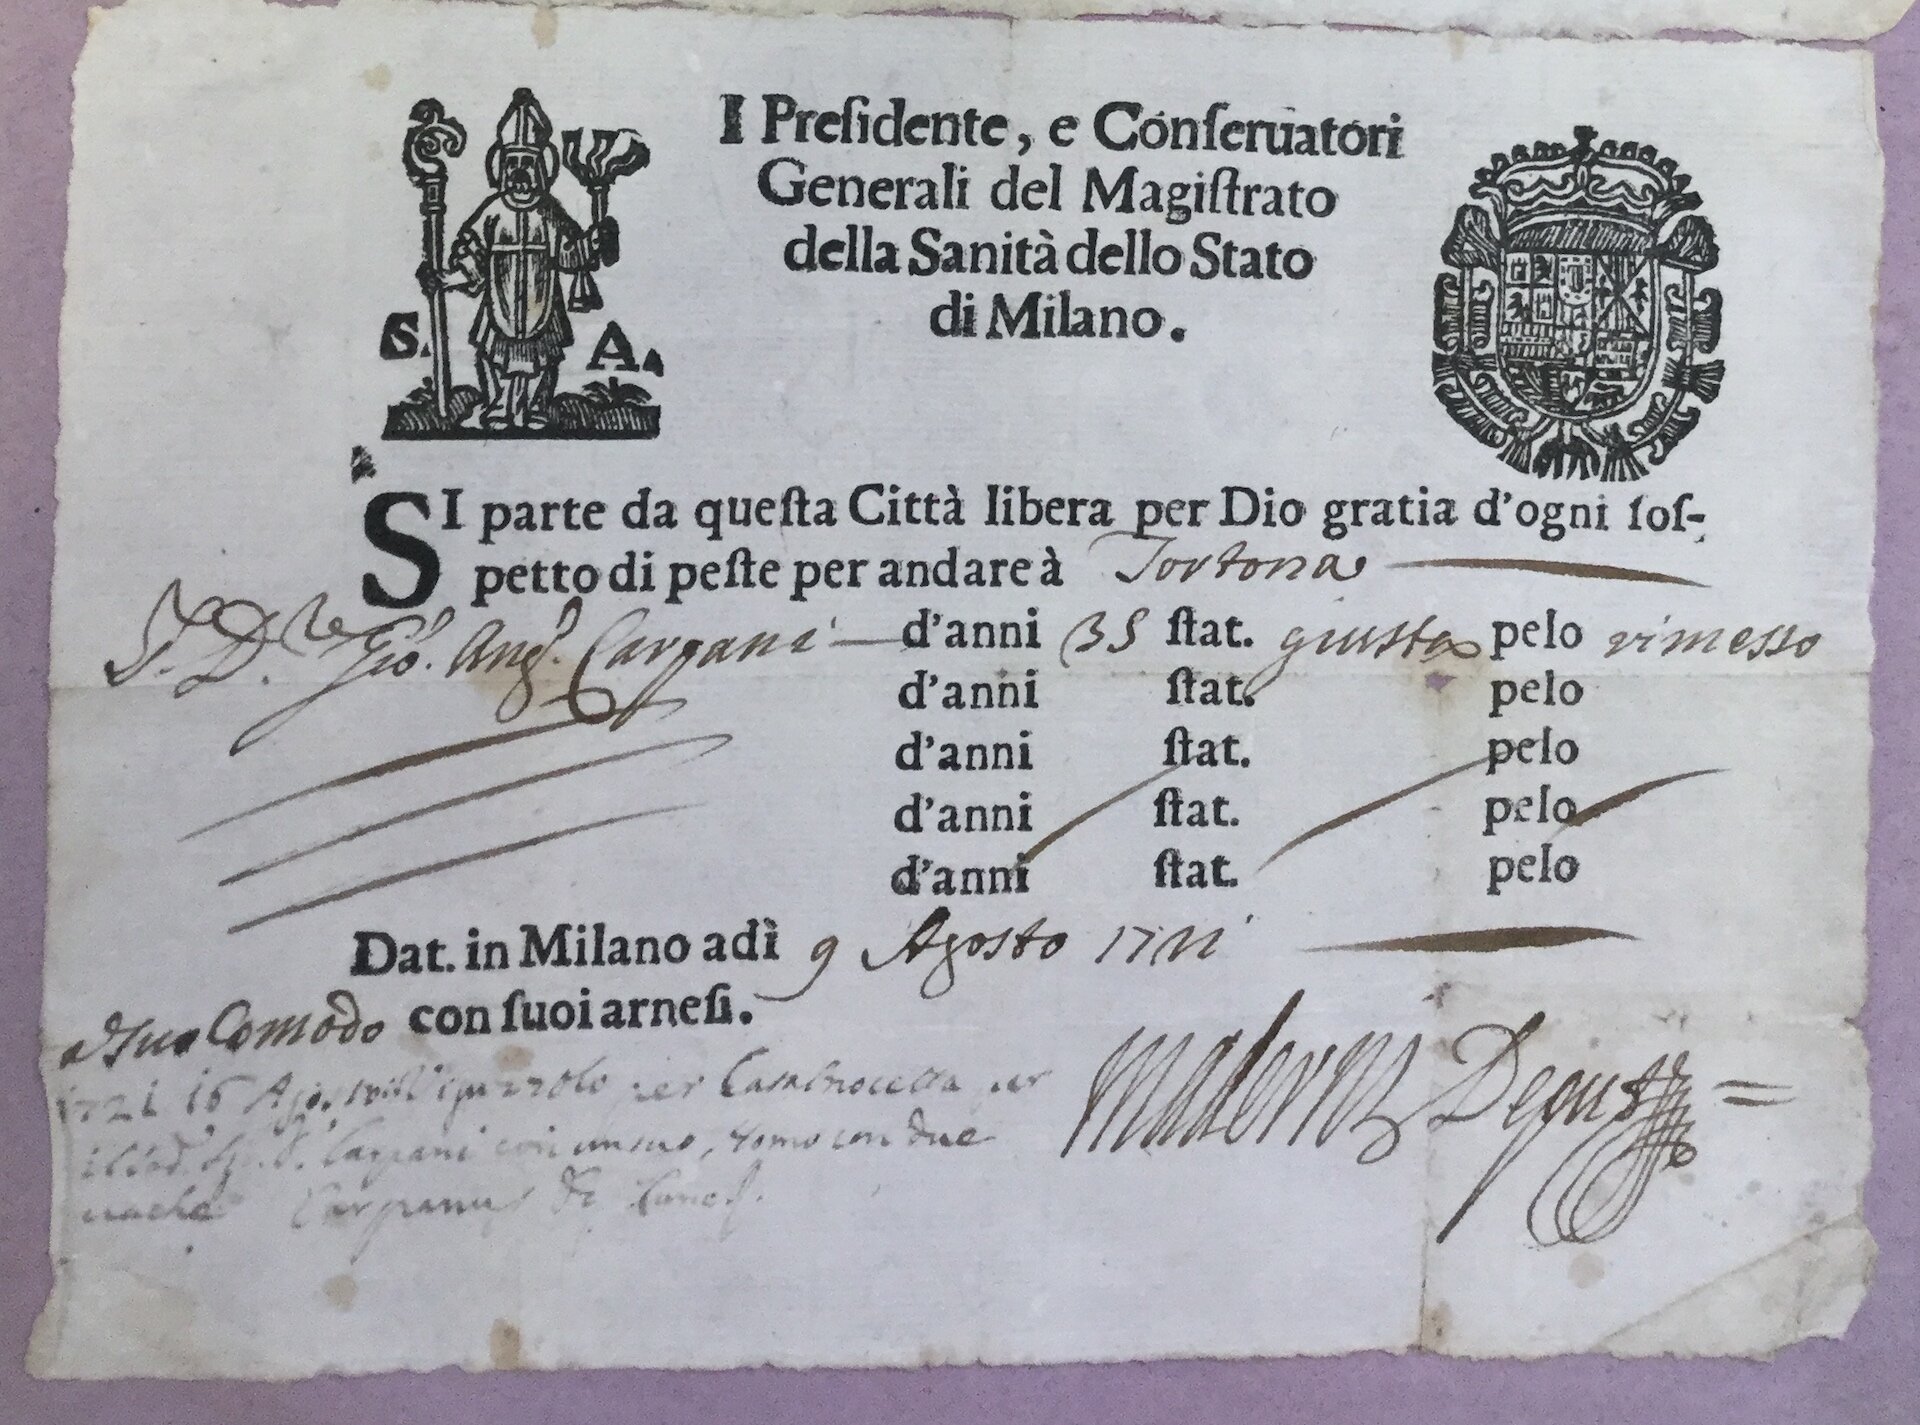 I Preſidente, e Conſeruatori
Generali del Magiſtrato
della Sanità dello Stato
di Milano.
S. A.
SI parte da queſta Città libera per Dio gratia d'ogni ſoſ-
petto di peſte per andare à Tortona
Gio. Ang. Carpani d'anni 35 ſtat. giusta pelo rimesso
d'anni ſtat. pelo
d'anni ſtat. pelo
d'anni ſtat. pelo
d'anni ſtat. pelo
Dat. in Milano adì 9 Agosto 1721
a suo Comodo con ſuoi arneſi.
1721 16 Agosto per
Carpani con un suo, due